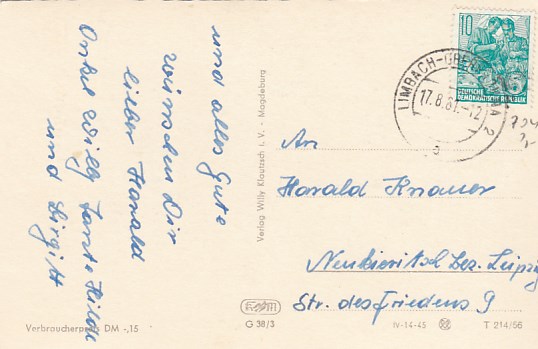 und alles Gute
wünschen Dir
lieber Harald
Onkel Willy Tante Hilde
und Birgitt
Verlag Willy Klautzsch i. V. - Magdeburg
10
DEUTSCHE
DEMOKRATISCHE REPUBLIK
LIMBACH-OBERFROHNA 2
17.8.61.-12
a
An
Harald Knauer
Neukieritzsch Bez. Leipzig
Str. des Friedens 9
Verbraucherpreis DM -,15
G 38/3
IV-14-45
T 214/56